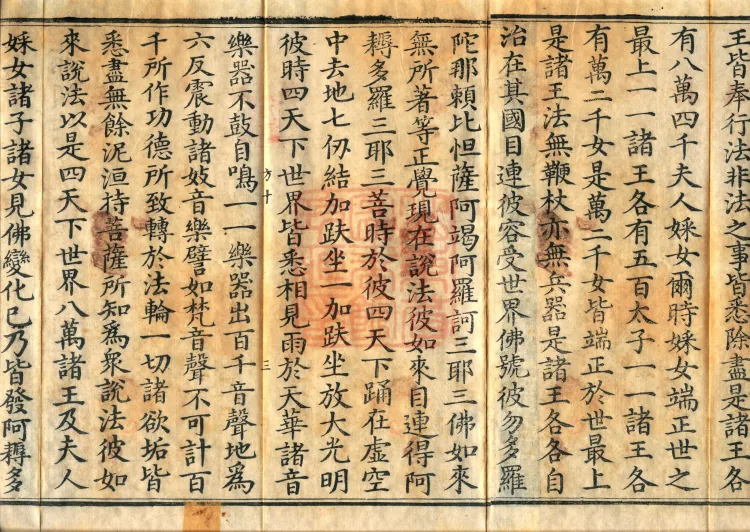 王皆奉行法非法之事皆悉除盡是諸王各
有八萬四千夫人婇女爾時婇女端正世之
最上一一諸王各有五百太子一一諸王各
有萬二千女是萬二千女皆端正於世最上
是諸王法無鞭杖亦無兵器是諸王各各自
治在其國目連彼容受世界佛號彼勿多羅
陀那頼比怛薩阿竭阿羅訶三耶三佛如來
無所著等正覺現在說法彼如來目連得阿
耨多羅三耶三菩時於彼四天下踊在虛空
中去地七仞結加趺坐一加趺坐放大光明
彼時四天下世界皆悉相見雨於天華諸音
方十 三
樂器不鼓自鳴一一樂器出百千音聲地爲
六反震動諸妓音樂譬如梵音聲不可計百
千所作功德所致轉於法輪一切諸欲垢皆
悉盡無餘泥洹持菩薩所知爲衆說法彼如
來說法以是四天下世界八萬諸王及夫人
婇女諸子諸女見佛變化已乃皆發阿耨多